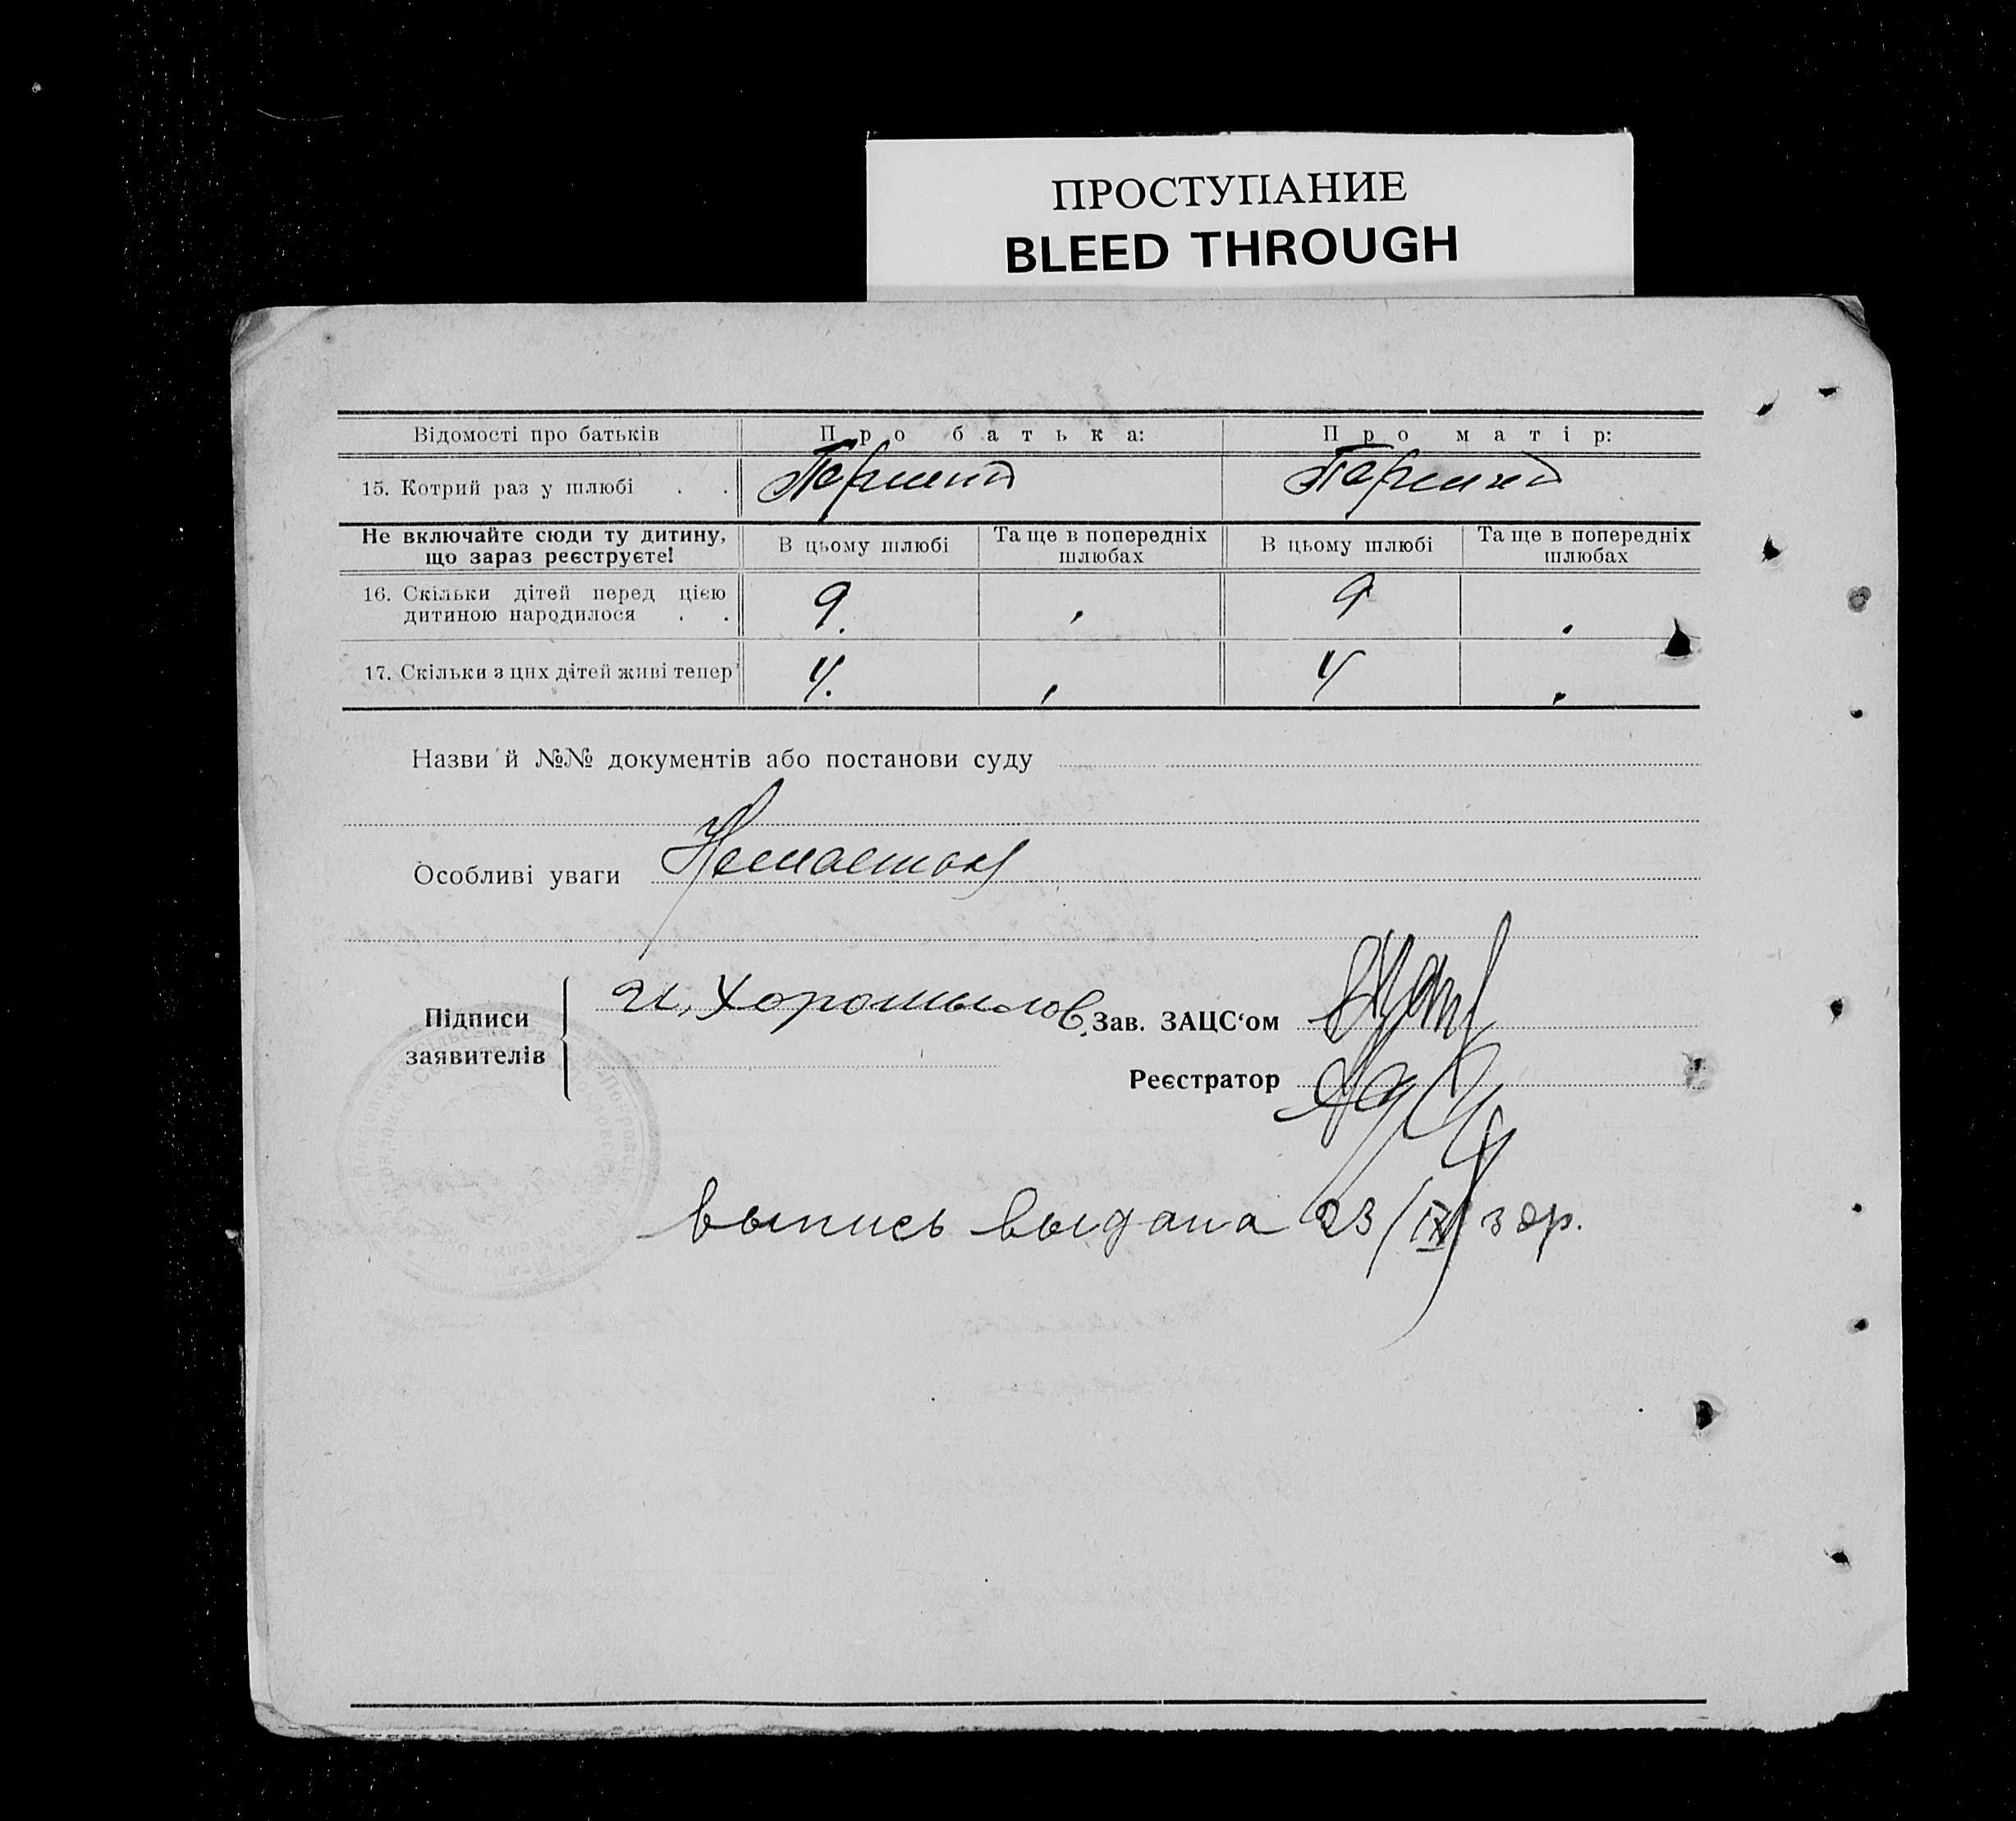 ПРОСТУПАНИЕ
BLEED THROUGH
Відомості про батьків Про батька: Про матір:
15. Котрий раз у шлюбі . . Перший Перший
Не включайте сюди ту дитину, що зараз реєструєте! В цьому шлюбі Та ще в попередніх шлюбах В цьому шлюбі Та ще в попередніх шлюбах
16. Скільки дітей перед цією
дитиною народилося . . 9. 9
17. Скільки з цих дітей живі тепер 4. 4
Назви й №№ документів або постанови суду
Особливі уваги
Підписи
заявителів
Хоромылов
Зав. ЗАЦС‘ом
Реєстратор
выпись выдана 23/IX 3 гр.